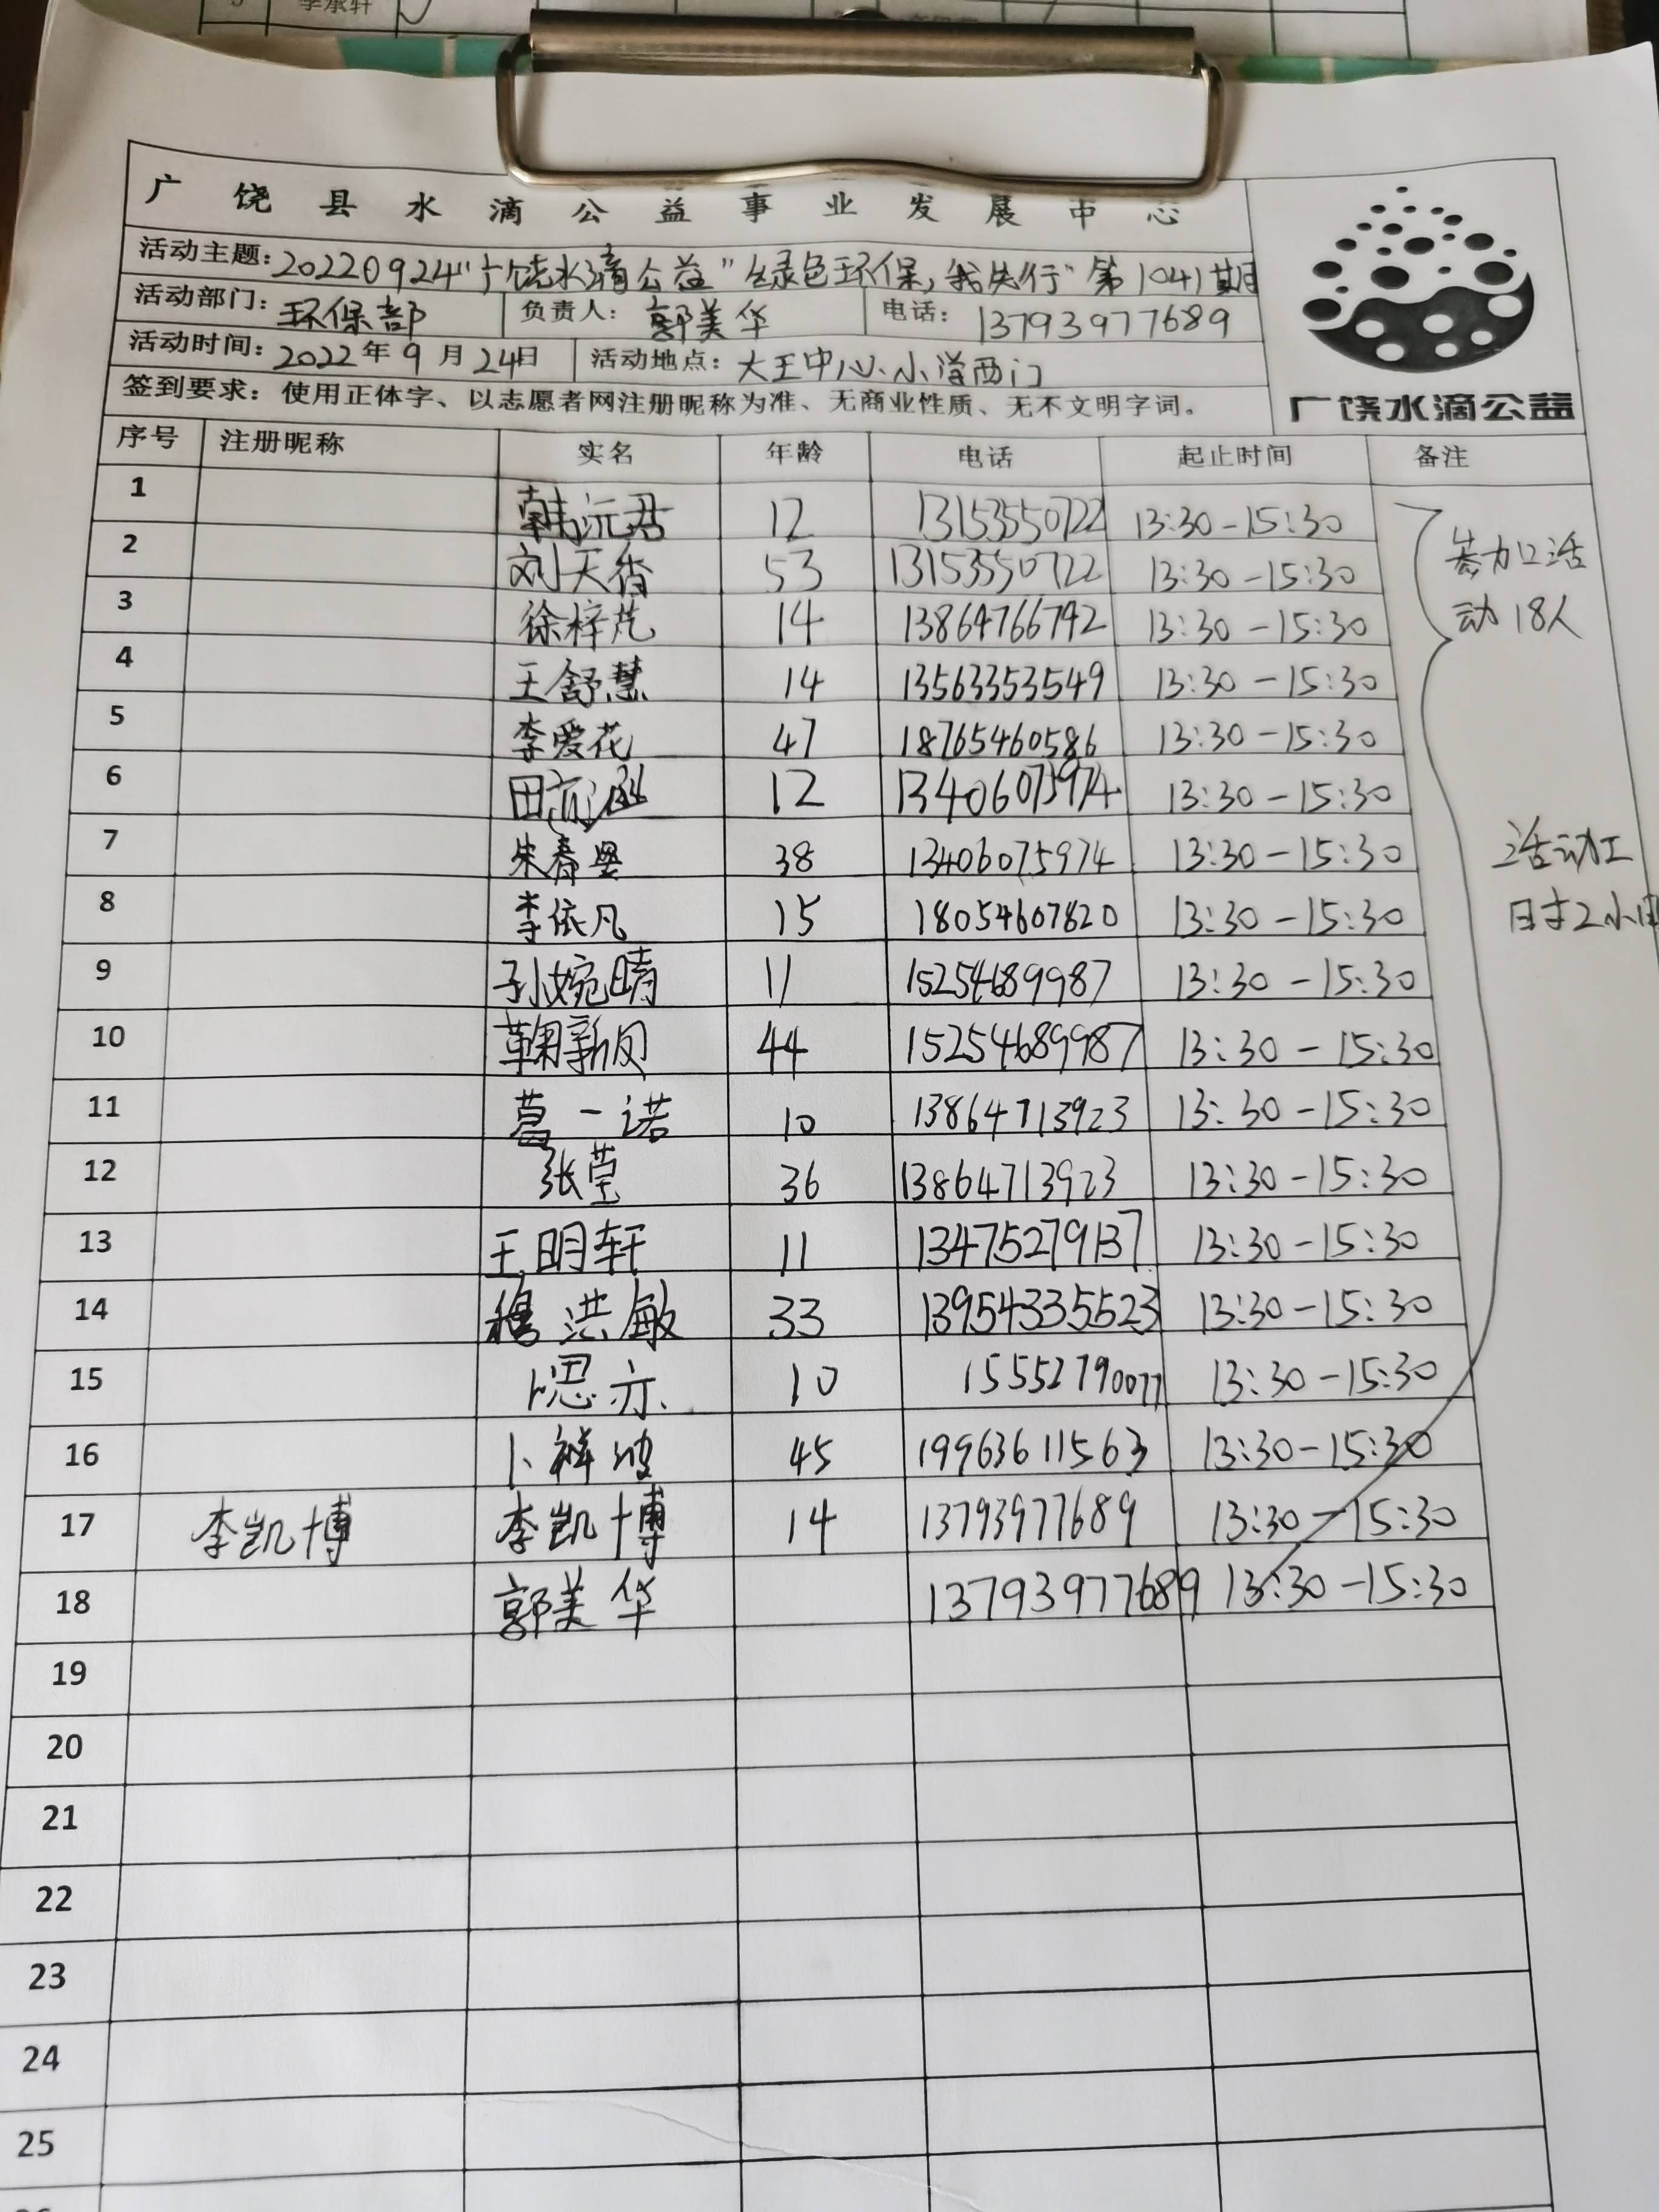 李承轩
广饶县水滴公益事业发展中心
活动主题：20220924"广饶水滴公益"绿色环保，我先行"第1041期
活动部门：环保部 负责人：郭美华 电话：13793977689
活动时间：2022年9月24日 活动地点：大王中心小学西门
签到要求：使用正体字、以志愿者网注册昵称为准、无商业性质、无不文明字词。
广饶水滴公益
序号 注册昵称 实名 年龄 电话 起止时间 备注
1 韩沅君 12 13153550722 13:30-15:30
2 刘天香 53 13153550722 13:30-15:30
参加活
3 徐梓芃 14 13864766792 13:30-15:30
动18人
4 王舒慧 14 13563353549 13:30-15:30
5 李爱花 47 18765460586 13:30-15:30
6 田 12 13406075974 13:30-15:30
7 朱春 38 13406075974 13:30-15:30
活动工
8 李依凡 15 18054607820 13:30-15:30
时2小时
9 孙婉晴 11 15254689987 13:30-15:30
10 鞠新凤 44 15254689987 13:30-15:30
11 葛一诺 10 13864713923 13:30-15:30
12 张莹 36 13864713923 13:30-15:30
13 王明轩 11 13475279137 13:30-15:30
14 穆洪敏 33 13954335523 13:30-15:30
15 卜思亦 10 15552790077 13:30-15:30
16 卜祥波 45 19963611563 13:30-15:30
17 李凯博 李凯博 14 13793977689 13:30-15:30
18 郭美华 13793977689 13:30-15:30
19
20
21
22
23
24
25